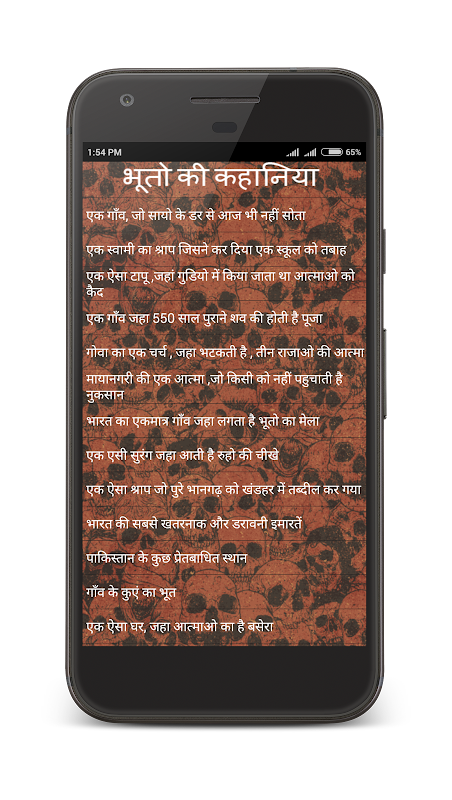 1:54 PM 65%
भूतो की कहानिया
एक गाँव, जो सायो के डर से आज भी नहीं सोता
एक स्वामी का श्राप जिसने कर दिया एक स्कूल को तबाह
एक ऐसा टापू ,जहां गुडियो में किया जाता था आत्माओ को
कैद
एक गाँव जहा 550 साल पुराने शव की होती है पूजा
गोवा का एक चर्च , जहा भटकती है , तीन राजाओ की आत्मा
मायानगरी की एक आत्मा ,जो किसी को नहीं पहुचाती है
नुकसान
भारत का एकमात्र गाँव जहा लगता है भूतो का मेला
एक एसी सुरंग जहा आती है रुहो की चीखे
एक ऐसा श्राप जो पुरे भानगढ़ को खंडहर में तब्दील कर गया
भारत की सबसे खतरनाक और डरावनी इमारतें
पाकिस्तान के कुछ प्रेतबाधित स्थान
गाँव के कुएं का भूत
एक ऐसा घर, जहा आत्माओ का है बसेरा